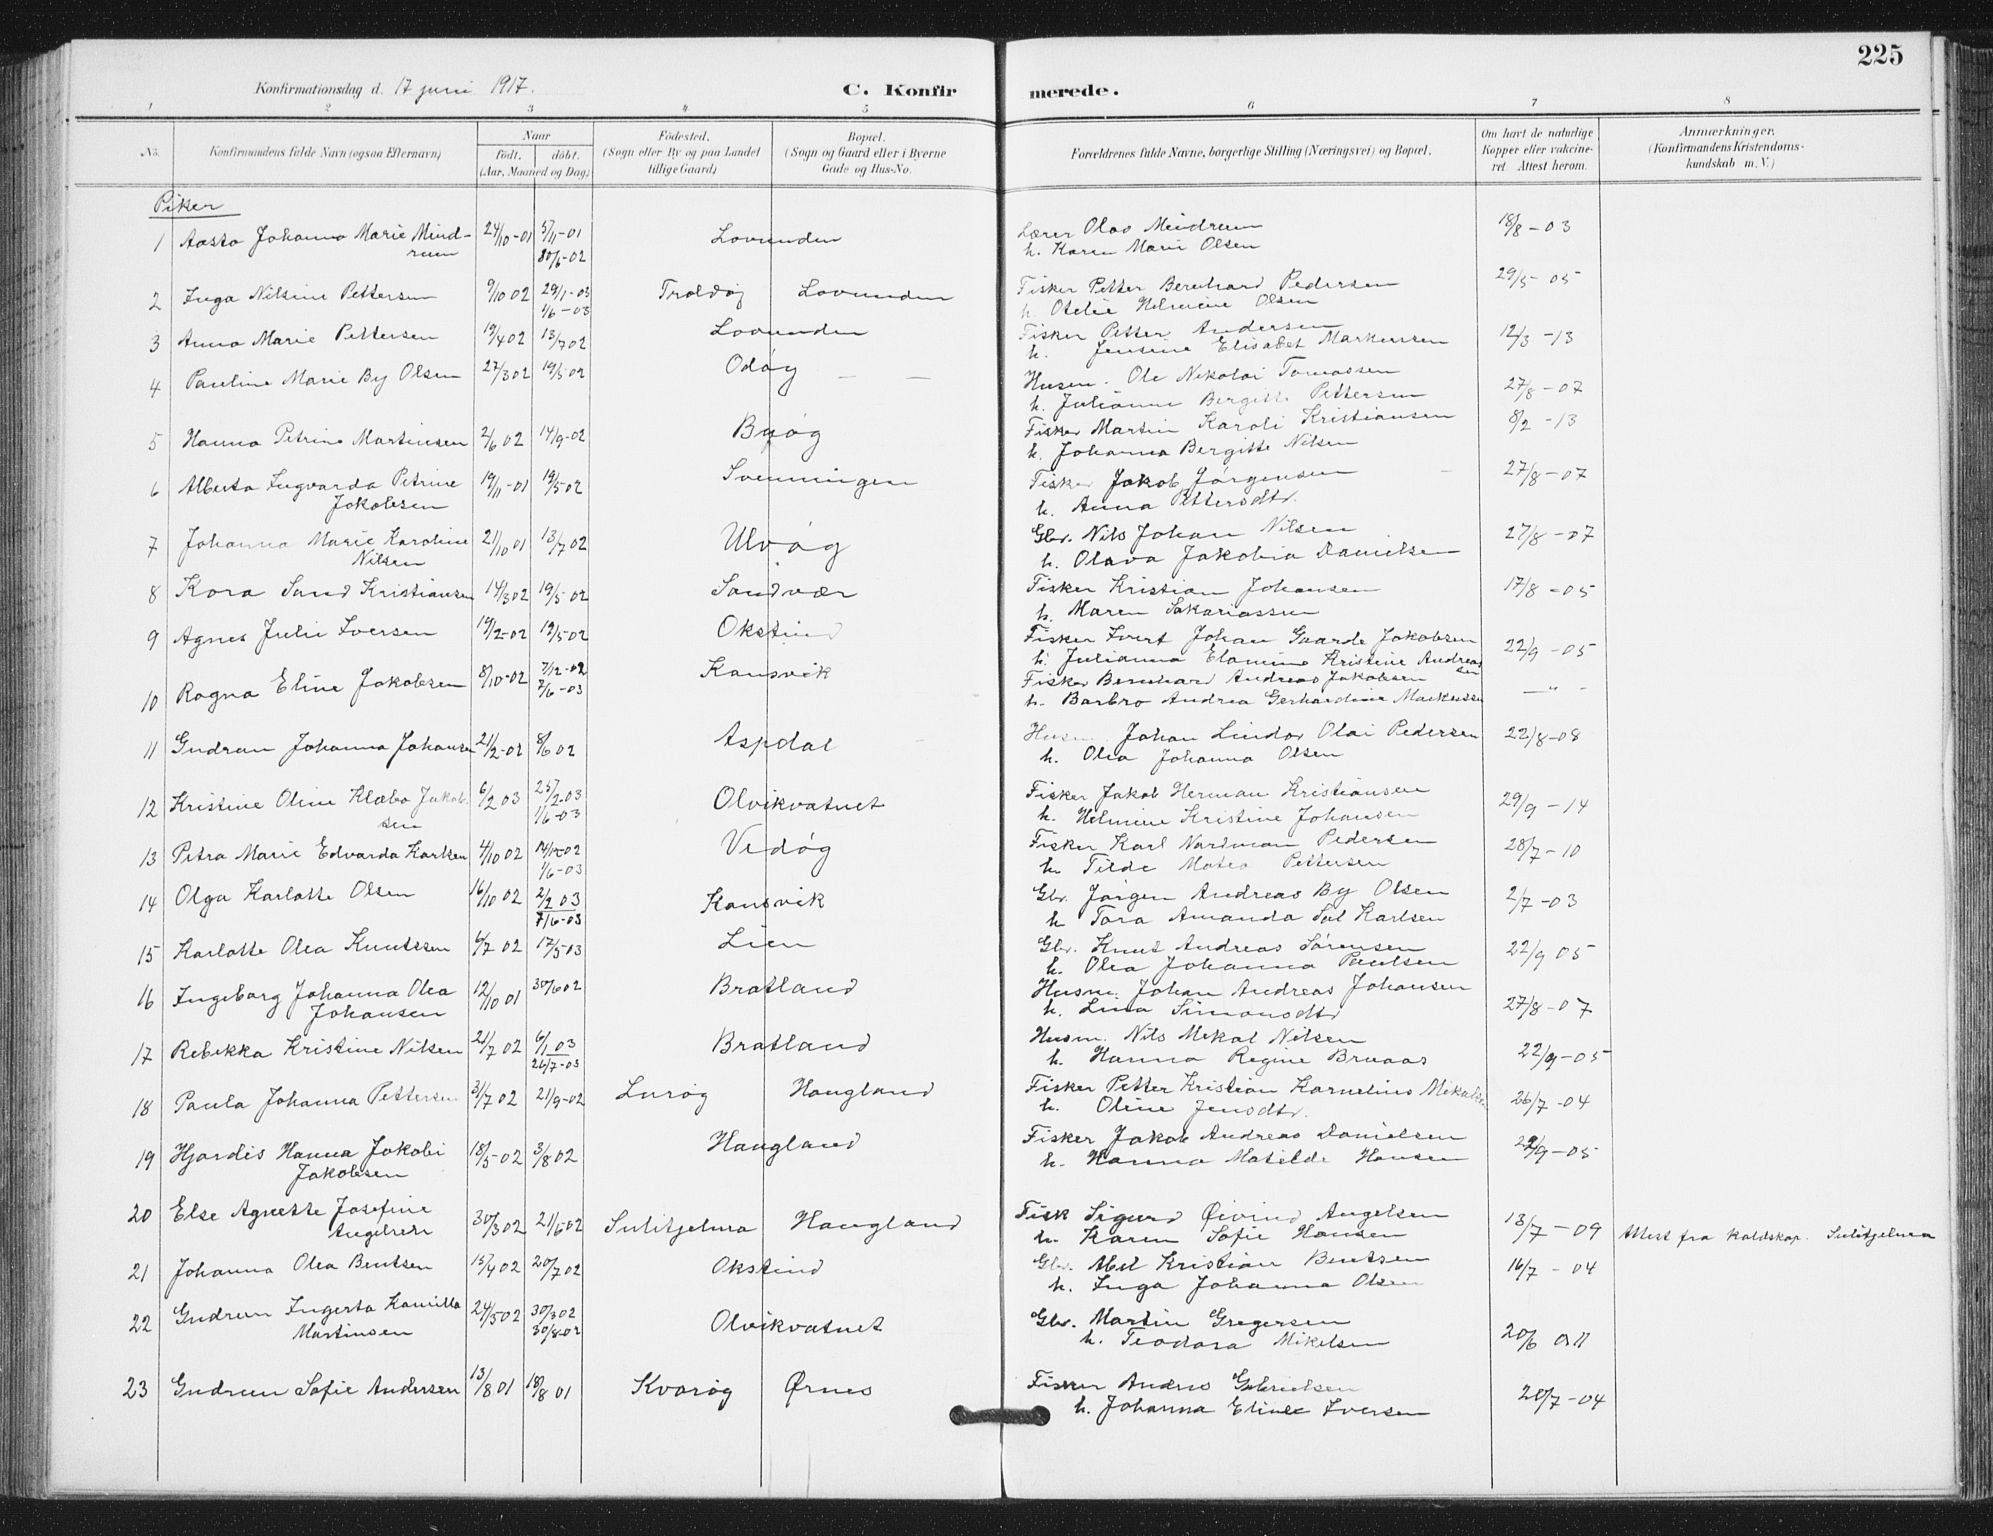 225
Konfirmationsdag d. 17 juni 1917.
C. Konfirmerede.
1 2 3 4 5 6 7 8
No.
Konfirmandens fulde Navn (ogsaa Efternavn)
Naar
født, døbt.
(Aar, Maaned og Dag)
Fødested.
(Sogn eller By og paa Landet
tillige Gaard)
Bopæl.
(Sogn og Gaard eller i Byerne
Gade og Hus-No.
Forældrenes fulde Navne, borgerlige Stilling (Næringsvei) og Bopæl.
Om havt de naturlige
Kopper eller vakcine-
ret. Attest herom.
Anmærkninger.
(Konfirmandens Kristendoms-
kundskab m. V.)
Piker
1 Aasta Johanna Marie Mind- 24/10-01 5/11-01 Lovunden Lærer Olav Meindrum 18/8-03
rum 30/6-02 h. Karen Marie Olsen
2 Inga Nilsine Pettersen 9/10 02 29/1-03 Troldøy Lovunden Fisker Petter Bernhard Pedersen 29/5-05
1/6-03 h. Otelie Helmine Olsen
3 Anna Marie Pettersen 19/4 02 13/7 02 Lovunden Fisker Petter Andersen 12/3-13
h. Jensine Elisabet Markussen
4 Pauline Marie By Olsen 27/3 02 19/5 02 Odøy — — Husm. Ole Nikolai Tomassen 27/8-07
h. Julianne Bergitte Pettersen
5 Hanna Petrine Martinsen 2/6 02 14/9-02 Buøy Fisker Martin Karoli Kristiansen 8/2-13
h. Johanna Bergitte Nilsen
6 Alberta Ingvarda Petrine 19/11-01 19/5 02 Svenningen Fisker Jakob Jørgensen 27/8-07
Jakobsen h. Anna Pettersdtr.
7 Johanna Marie Karoline 21/10 01 13/7 02 Ulvøg Gbr. Nils Johan Nilsen 27/8-07
Nilsen h. Olava Jakobia Danielsen
8 Kora Sand Kristiansen 14/3 02 19/5-02 Sandvær Fisker Kristian Johansen 17/8-05
h. Maren Sakariassen
9 Agnes Julie Iversen 19/2-02 19/5-02 Okstind Fisker Ivert Johan Gaarde Jakobsen 22/9-05
h. Julianna Elamine Kristine Andreas
sen
10 Ragna Eline Jakobsen 8/10-02 7/12-02 Konsvik Fisker Bernhard Andreas Jakobsen —"-
7/6-03 h. Barbro Andrea Gerhardine Markussen
11 Gudrun Johanna Johansen 21/2-02 8/6 02 Aspdal Husm. Johan Lindor Olai Pedersen 22/8-08
h. Olea Johanna Olsen
12 Kristine Oline Klæbo Jakob- 6/2 03 25/2-03 Olvikvatnet Fisker Jakob Herman Kristiansen 29/9-14
sen 1/6-03 h. Helmine Kristine Johansen
13 Petra Marie Edvarda Karlsen 4/10 02 14/12-02 Vedøg Fisker Karl Nordman Pedersen 28/7-10
1/6-03 h. Tilde Matea Pettersen
14 Olga Karlotte Olsen 16/10 02 2/2 03 Konsvik Gbr. Jørgen Andreas By Olsen 2/7-03
7/6-03 h Tora Amanda Sol Karlsen
15 Karlotte Olea Knutssen 6/7 02 17/5-03 Lien Gbr. Knut Andreas Sørensen 22/9 05
h. Olea Johanna Paulsen
16 Ingeborg Johanna Olea 12/10 01 30/6 02 Bratland Husm. Johan Andreas Johansen 27/8-07
Johansen h. Lina Simonsdtr
17 Rebekka Kristine Nilsen 21/7 02 6/1 03 Bratland Husm. Nils Mekal Nilsen 22/9-05
26/7-03 h. Hanna Regine Bruaas
18 Paula Johanna Pettersen 31/7 02 21/9-02 Lurøg Haugland Fisker Petter Kristian Kornelius Mikalsen 26/7-04
h. Oline Jensdtr.
19 Hjørdis Hanna Jakobi 18/5-02 3/8 02 Haugland Fisker Jakob Andreas Danielsen 22/9-05
Jakobsen h. Hanna Matilde Hansen
20 Else Agnette Josefine 30/3 02 21/6 02 Sulitjelma Haugland Fisk Sigurd Øivind Angelsen 13/7-09 Attest fra koldskap. Sulitjelma
Angelsen h. Karen Sofie Hansen
21 Johanna Olea Bentsen 15/4 02 20/7 02 Okstind Gbr. Abel Kristian Bentsen 16/7-04
h. Inga Johanna Olsen
22 Gudrun Ingerta Kamilla 24/5 02 30/3 02 Olvikvatnet Gbr. Martin Gregersen 20/6
Martinsen 30/8-02 h. Teodora Mikelsen
23 Gudrun Sofie Andersen 13/8 01 18/8 01 Kvarøg Ørnes Fisker Andres Gabrielsen 20/7-04
h. Johanna Eline Iversen